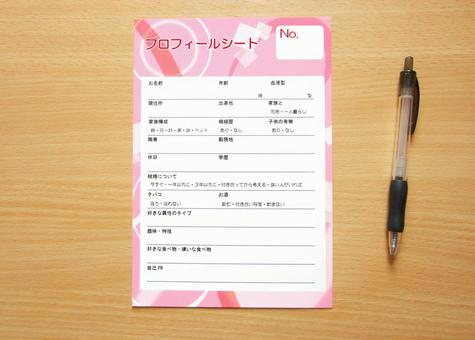 プロフィールシート
No.
お名前 年齢 血液型
歳 型
現住所 出身地 家族と
同居・一人暮らし
家族構成 婚姻歴 子供の有無
あり・なし あり・なし
職業 勤務地
休日 学歴
結婚について
今すぐ・一年以内に・3年以内に・付き合ってから考える・良い人がいれば
タバコ お酒
吸う・吸わない 飲む・付き合い程度・飲まない
好きな異性のタイプ
趣味・特技
好きな食べ物・嫌いな食べ物
自己PR